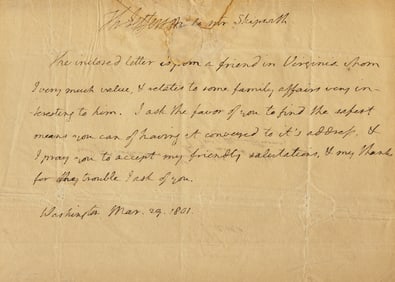 Th: Jefferson to mr Skipwith
The inclosed letter is from a friend in Virginia whom
I very much value, & relates to some family affairs very in-
-teresting to him. I ask the favor of you to find the safest
means you can of having it conveyed to it's address, &
I pray you to accept my friendly salutations, & my thanks
for the trouble I ask of you.
Washington Mar. 29. 1801.